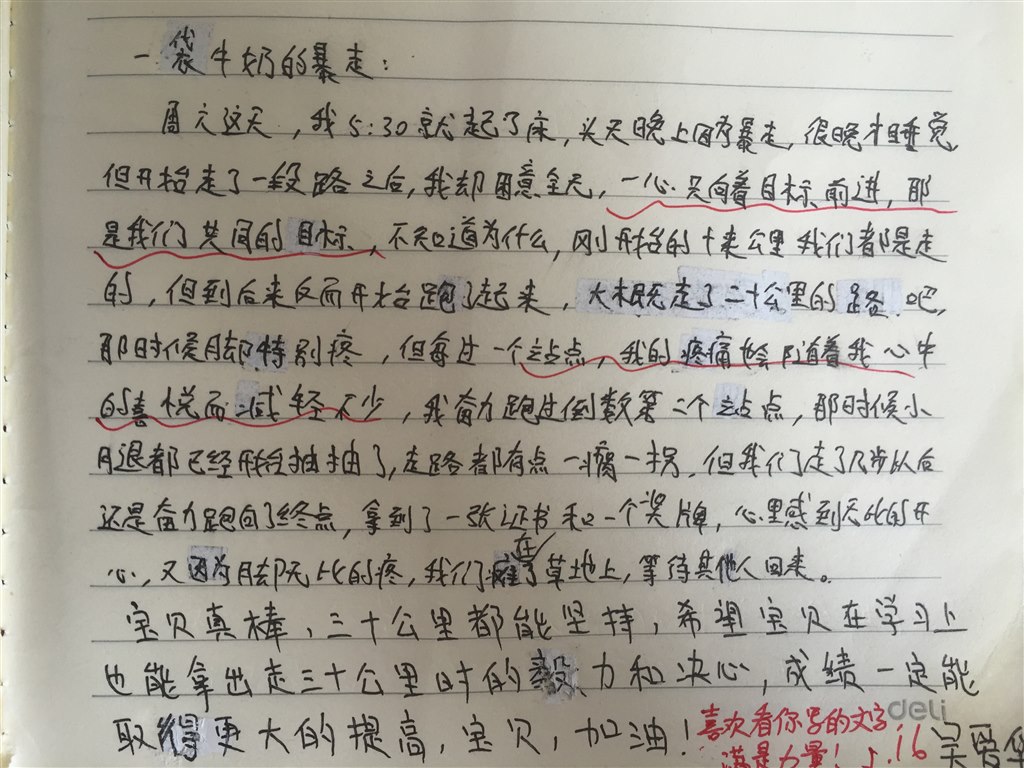 一袋牛奶的暴走：
周六这天，我5:30就起了床，头天晚上因为暴走，很晚才睡觉，
但开始走了一段路之后，我却困意全无，一心只向着目标前进，那
是我们共同的目标，不知道为什么，刚开始的十来公里我们都是走
的，但到后来反而开始跑了起来，大概走了二十公里的路吧，
那时候脚特别疼，但每过一个站点，我的疼痛也会随着我心中
的喜悦而减轻不少，我奋力跑过倒数第二个站点，那时候小
腿都已经开始抽抽了，走路都有点一瘸一拐，但我们走了几步以后
还是奋力跑向了终点，拿到了一张证书和一个奖牌，心里感到无比的开
心，又因为脚无比的疼，我们瘫在草地上，等待其他人回来。
宝贝真棒，三十公里都能坚持，希望宝贝在学习上
也能拿出走三十公里时的毅力和决心，成绩一定能
取得更大的提高，宝贝，加油！
喜欢看你写的文字
满是力量！
5.16
deli